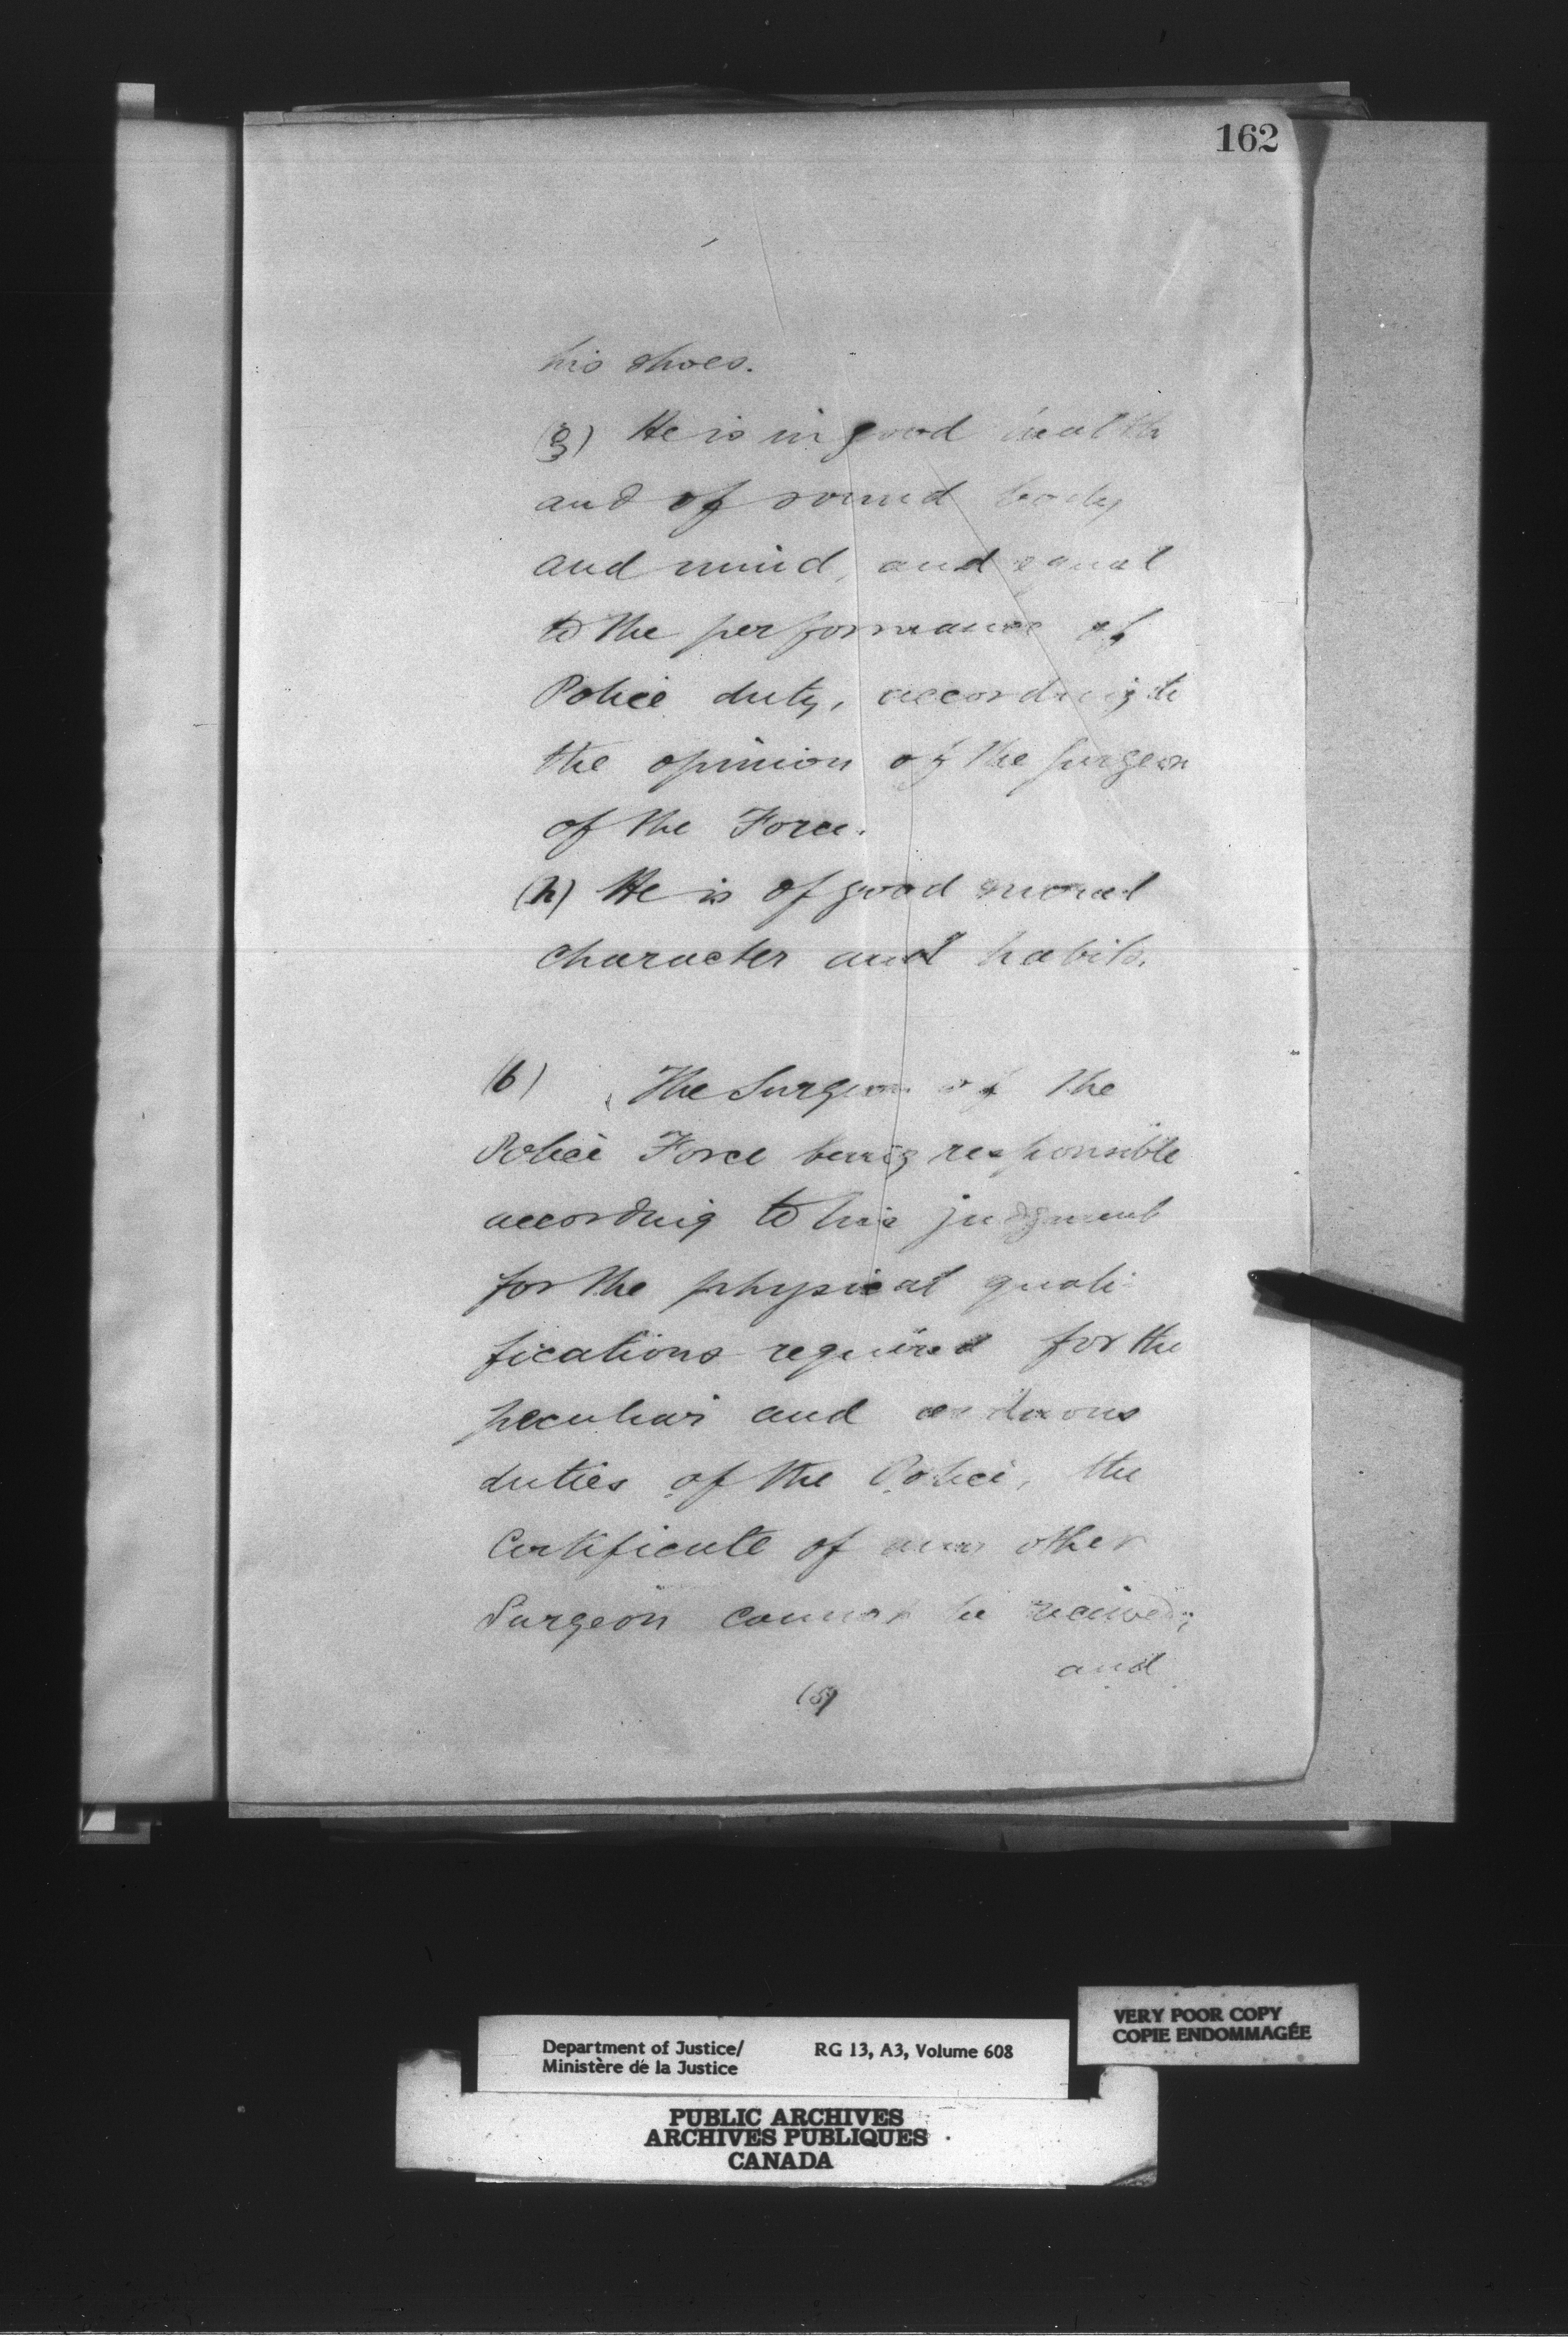 162
his shoes.
(g) He is in good health
and of sound body
and mind, and equal
to the performance of
Police duty, according to
the opinion of the Surgeon
of the Force.
(h) He is of good moral
character and habits.
(6) The Surgeon of the
Police Force being responsible
according to his judgment
for the physical quali-
fications required for the
peculiar and arduous
duties of the Police, the
Certificate of any other
Surgeon cannot be received;
and
(5)
VERY POOR COPY
COPIE ENDOMMAGÉE
Department of Justice/ RG 13, A3, Volume 608
Ministère de la Justice
PUBLIC ARCHIVES
ARCHIVES PUBLIQUES
CANADA